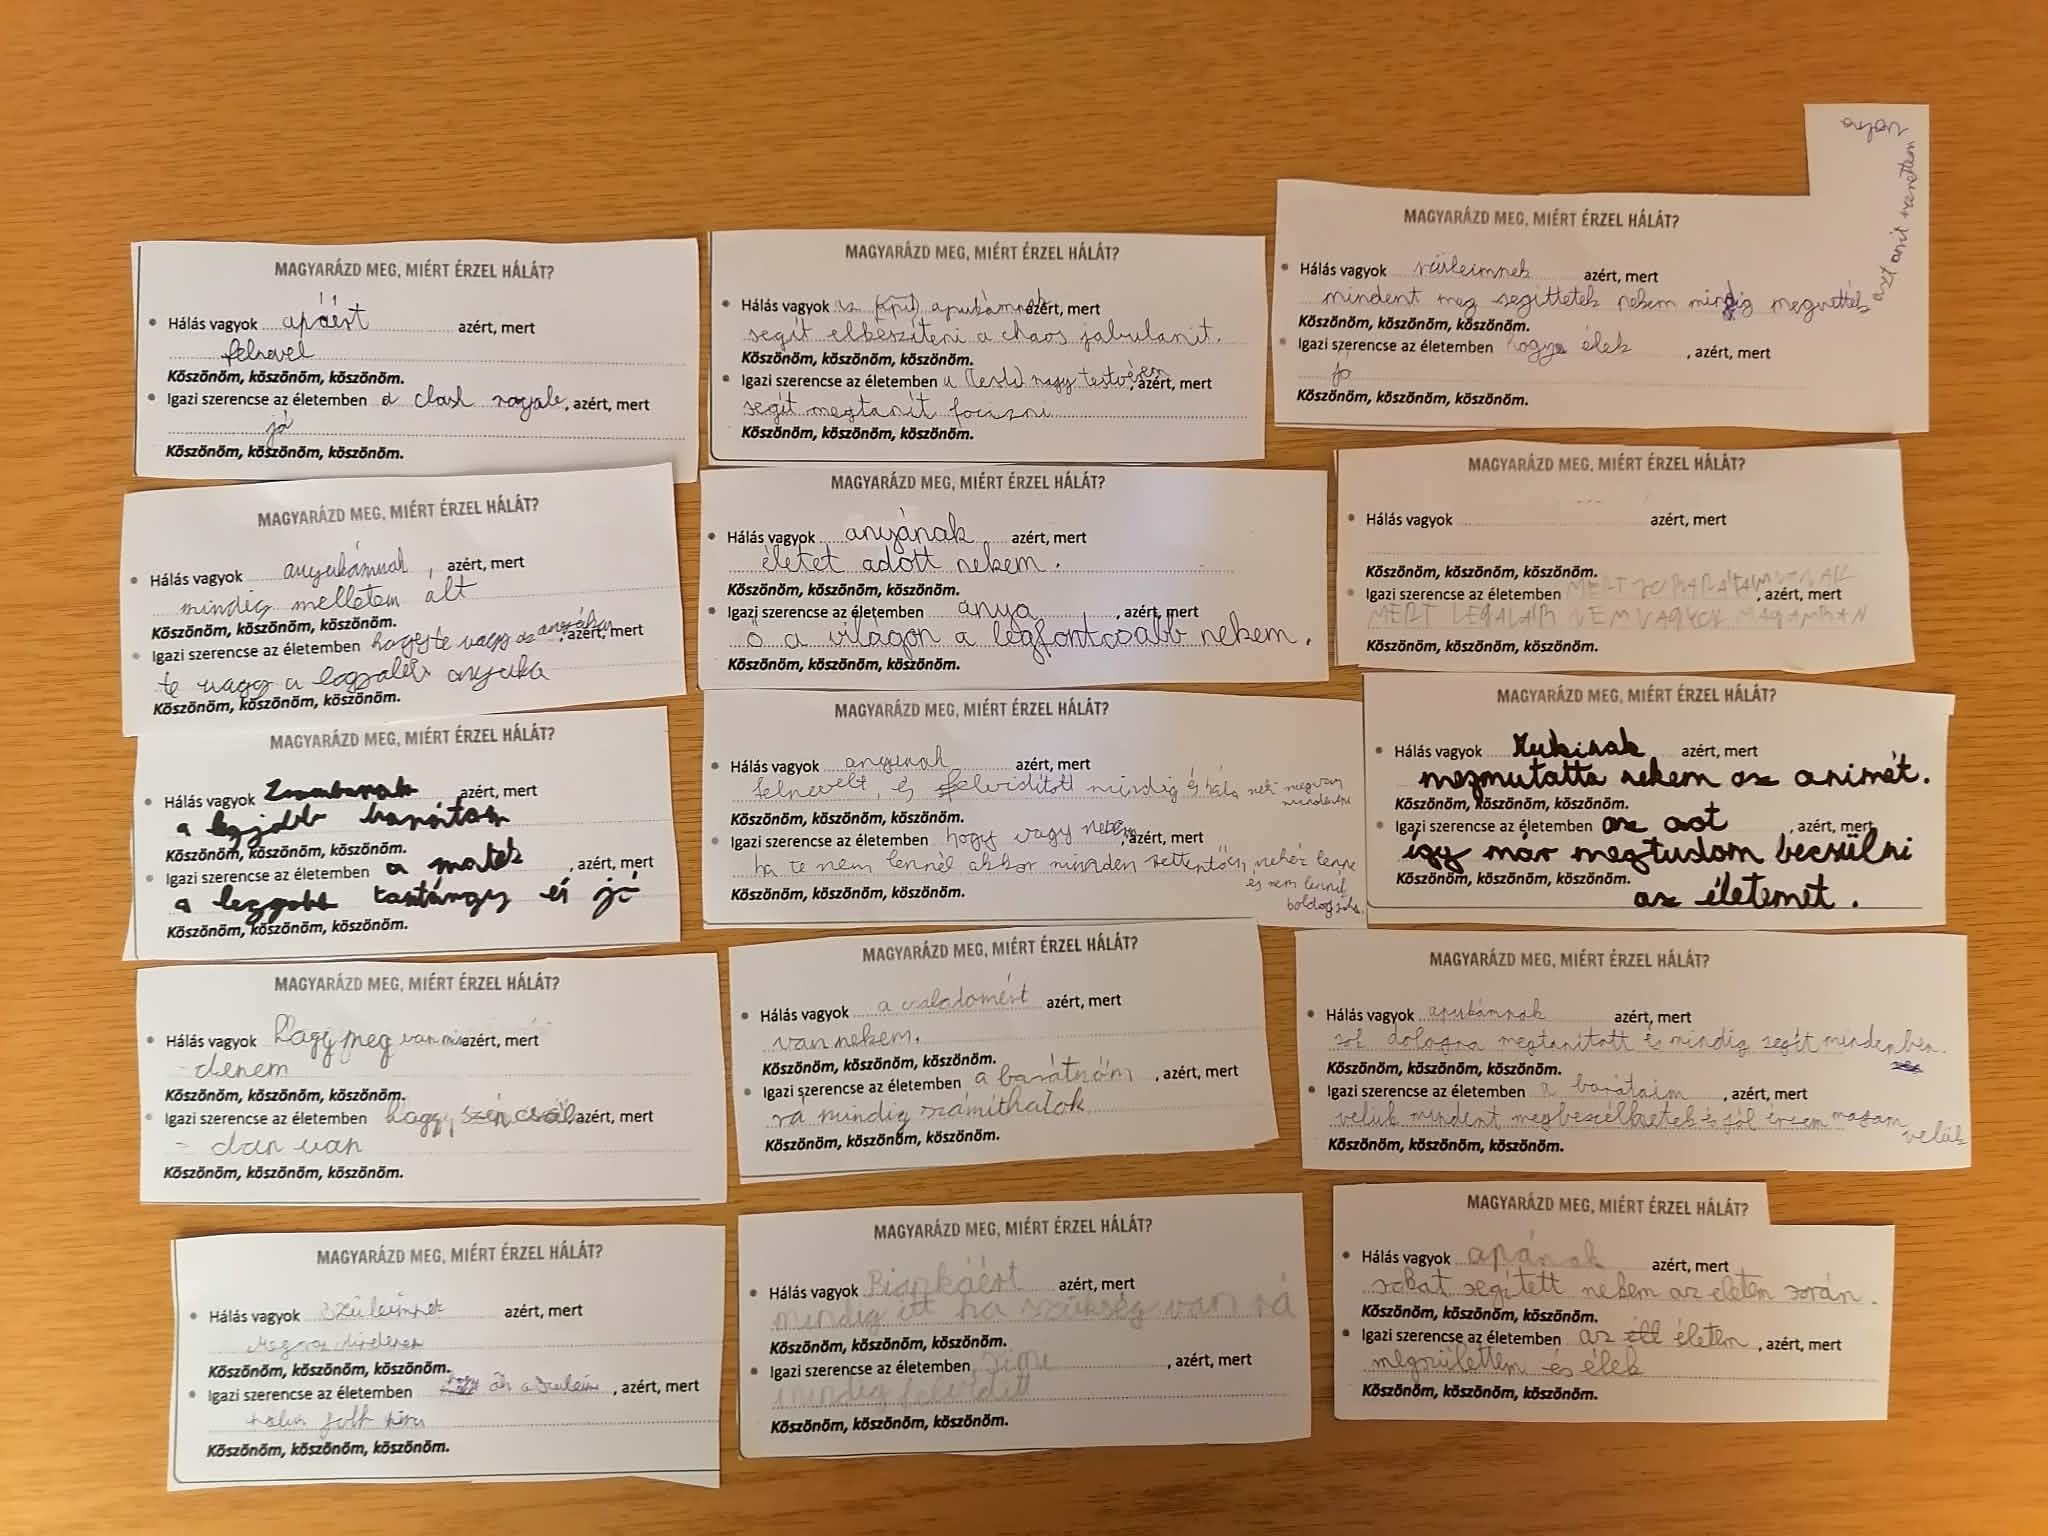 MAGYARÁZD MEG, MIÉRT ÉRZEL HÁLÁT?
Hálás vagyok apáért azért, mert
felnevel
Köszönöm, köszönöm, köszönöm.
Igazi szerencse az életemben a clash royale, azért, mert
jó
Köszönöm, köszönöm, köszönöm.
MAGYARÁZD MEG, MIÉRT ÉRZEL HÁLÁT?
Hálás vagyok az apukámnak azért, mert
segít elkészíteni a chaos jabulanit.
Köszönöm, köszönöm, köszönöm.
Igazi szerencse az életemben a nagy testvérem, azért, mert
segít megtanít focizni
Köszönöm, köszönöm, köszönöm.
MAGYARÁZD MEG, MIÉRT ÉRZEL HÁLÁT?
Hálás vagyok szüleimnek azért, mert
mindent meg segittetek nekem mindig megvették
azt amit szerettem
Köszönöm, köszönöm, köszönöm.
Igazi szerencse az életemben hogy élek, azért, mert
jó
Köszönöm, köszönöm, köszönöm.
MAGYARÁZD MEG, MIÉRT ÉRZEL HÁLÁT?
Hálás vagyok anyukámnak, azért, mert
mindig melletem ált
Köszönöm, köszönöm, köszönöm.
Igazi szerencse az életemben hogy te vagy az anyukám, azért, mert
te vagy a anyuka
Köszönöm, köszönöm, köszönöm.
MAGYARÁZD MEG, MIÉRT ÉRZEL HÁLÁT?
Hálás vagyok anyának azért, mert
életet adott nekem.
Köszönöm, köszönöm, köszönöm.
Igazi szerencse az életemben anya, azért, mert
ő a világon a legfontosabb nekem.
Köszönöm, köszönöm, köszönöm.
MAGYARÁZD MEG, MIÉRT ÉRZEL HÁLÁT?
Hálás vagyok azért, mert
Köszönöm, köszönöm, köszönöm.
Igazi szerencse az életemben MERT VANNAK, azért, mert
MERT LEGALÁB NEM VAGYOK MAGAMBAN
Köszönöm, köszönöm, köszönöm.
MAGYARÁZD MEG, MIÉRT ÉRZEL HÁLÁT?
Hálás vagyok azért, mert
a legjobb barátom
Köszönöm, köszönöm, köszönöm.
Igazi szerencse az életemben a matek, azért, mert
a legjobb tantárgy és jó
Köszönöm, köszönöm, köszönöm.
MAGYARÁZD MEG, MIÉRT ÉRZEL HÁLÁT?
Hálás vagyok anyunak azért, mert
felnevelt, és felvidított mindig és hála neki megvan
mindenem
Köszönöm, köszönöm, köszönöm.
Igazi szerencse az életemben hogy vagy nekem, azért, mert
ha te nem lennél akkor minden rettentően nehéz lenne
és nem lennék
boldog soha.
Köszönöm, köszönöm, köszönöm.
MAGYARÁZD MEG, MIÉRT ÉRZEL HÁLÁT?
Hálás vagyok azért, mert
megmutatta nekem az animét.
Köszönöm, köszönöm, köszönöm.
Igazi szerencse az életemben az aot, azért, mert
így már megtudom becsülni
Köszönöm, köszönöm, köszönöm.
az életemet.
MAGYARÁZD MEG, MIÉRT ÉRZEL HÁLÁT?
Hálás vagyok hagy meg van min azért, mert
denem
Köszönöm, köszönöm, köszönöm.
Igazi szerencse az életemben hagy szép csalá, azért, mert
dan van
Köszönöm, köszönöm, köszönöm.
MAGYARÁZD MEG, MIÉRT ÉRZEL HÁLÁT?
Hálás vagyok a családomért azért, mert
van nekem.
Köszönöm, köszönöm, köszönöm.
Igazi szerencse az életemben a barátnőm, azért, mert
rá mindig számíthatok
Köszönöm, köszönöm, köszönöm.
MAGYARÁZD MEG, MIÉRT ÉRZEL HÁLÁT?
Hálás vagyok apukámnak azért, mert
sok dologra megtanított és mindig segít mindenben.
Köszönöm, köszönöm, köszönöm.
Igazi szerencse az életemben a barátaim, azért, mert
velük mindent megbeszélhetek és jól érzem magam
velük
Köszönöm, köszönöm, köszönöm.
MAGYARÁZD MEG, MIÉRT ÉRZEL HÁLÁT?
Hálás vagyok Szüleimnek azért, mert
Köszönöm, köszönöm, köszönöm.
Igazi szerencse az életemben, azért, mert
Köszönöm, köszönöm, köszönöm.
MAGYARÁZD MEG, MIÉRT ÉRZEL HÁLÁT?
Hálás vagyok Biankáért azért, mert
mindig itt ha szükség van rá
Köszönöm, köszönöm, köszönöm.
Igazi szerencse az életemben, azért, mert
mindig
Köszönöm, köszönöm, köszönöm.
MAGYARÁZD MEG, MIÉRT ÉRZEL HÁLÁT?
Hálás vagyok apának azért, mert
sokat segített nekem az életem során.
Köszönöm, köszönöm, köszönöm.
Igazi szerencse az életemben az életem, azért, mert
megszülettem és élek
Köszönöm, köszönöm, köszönöm.